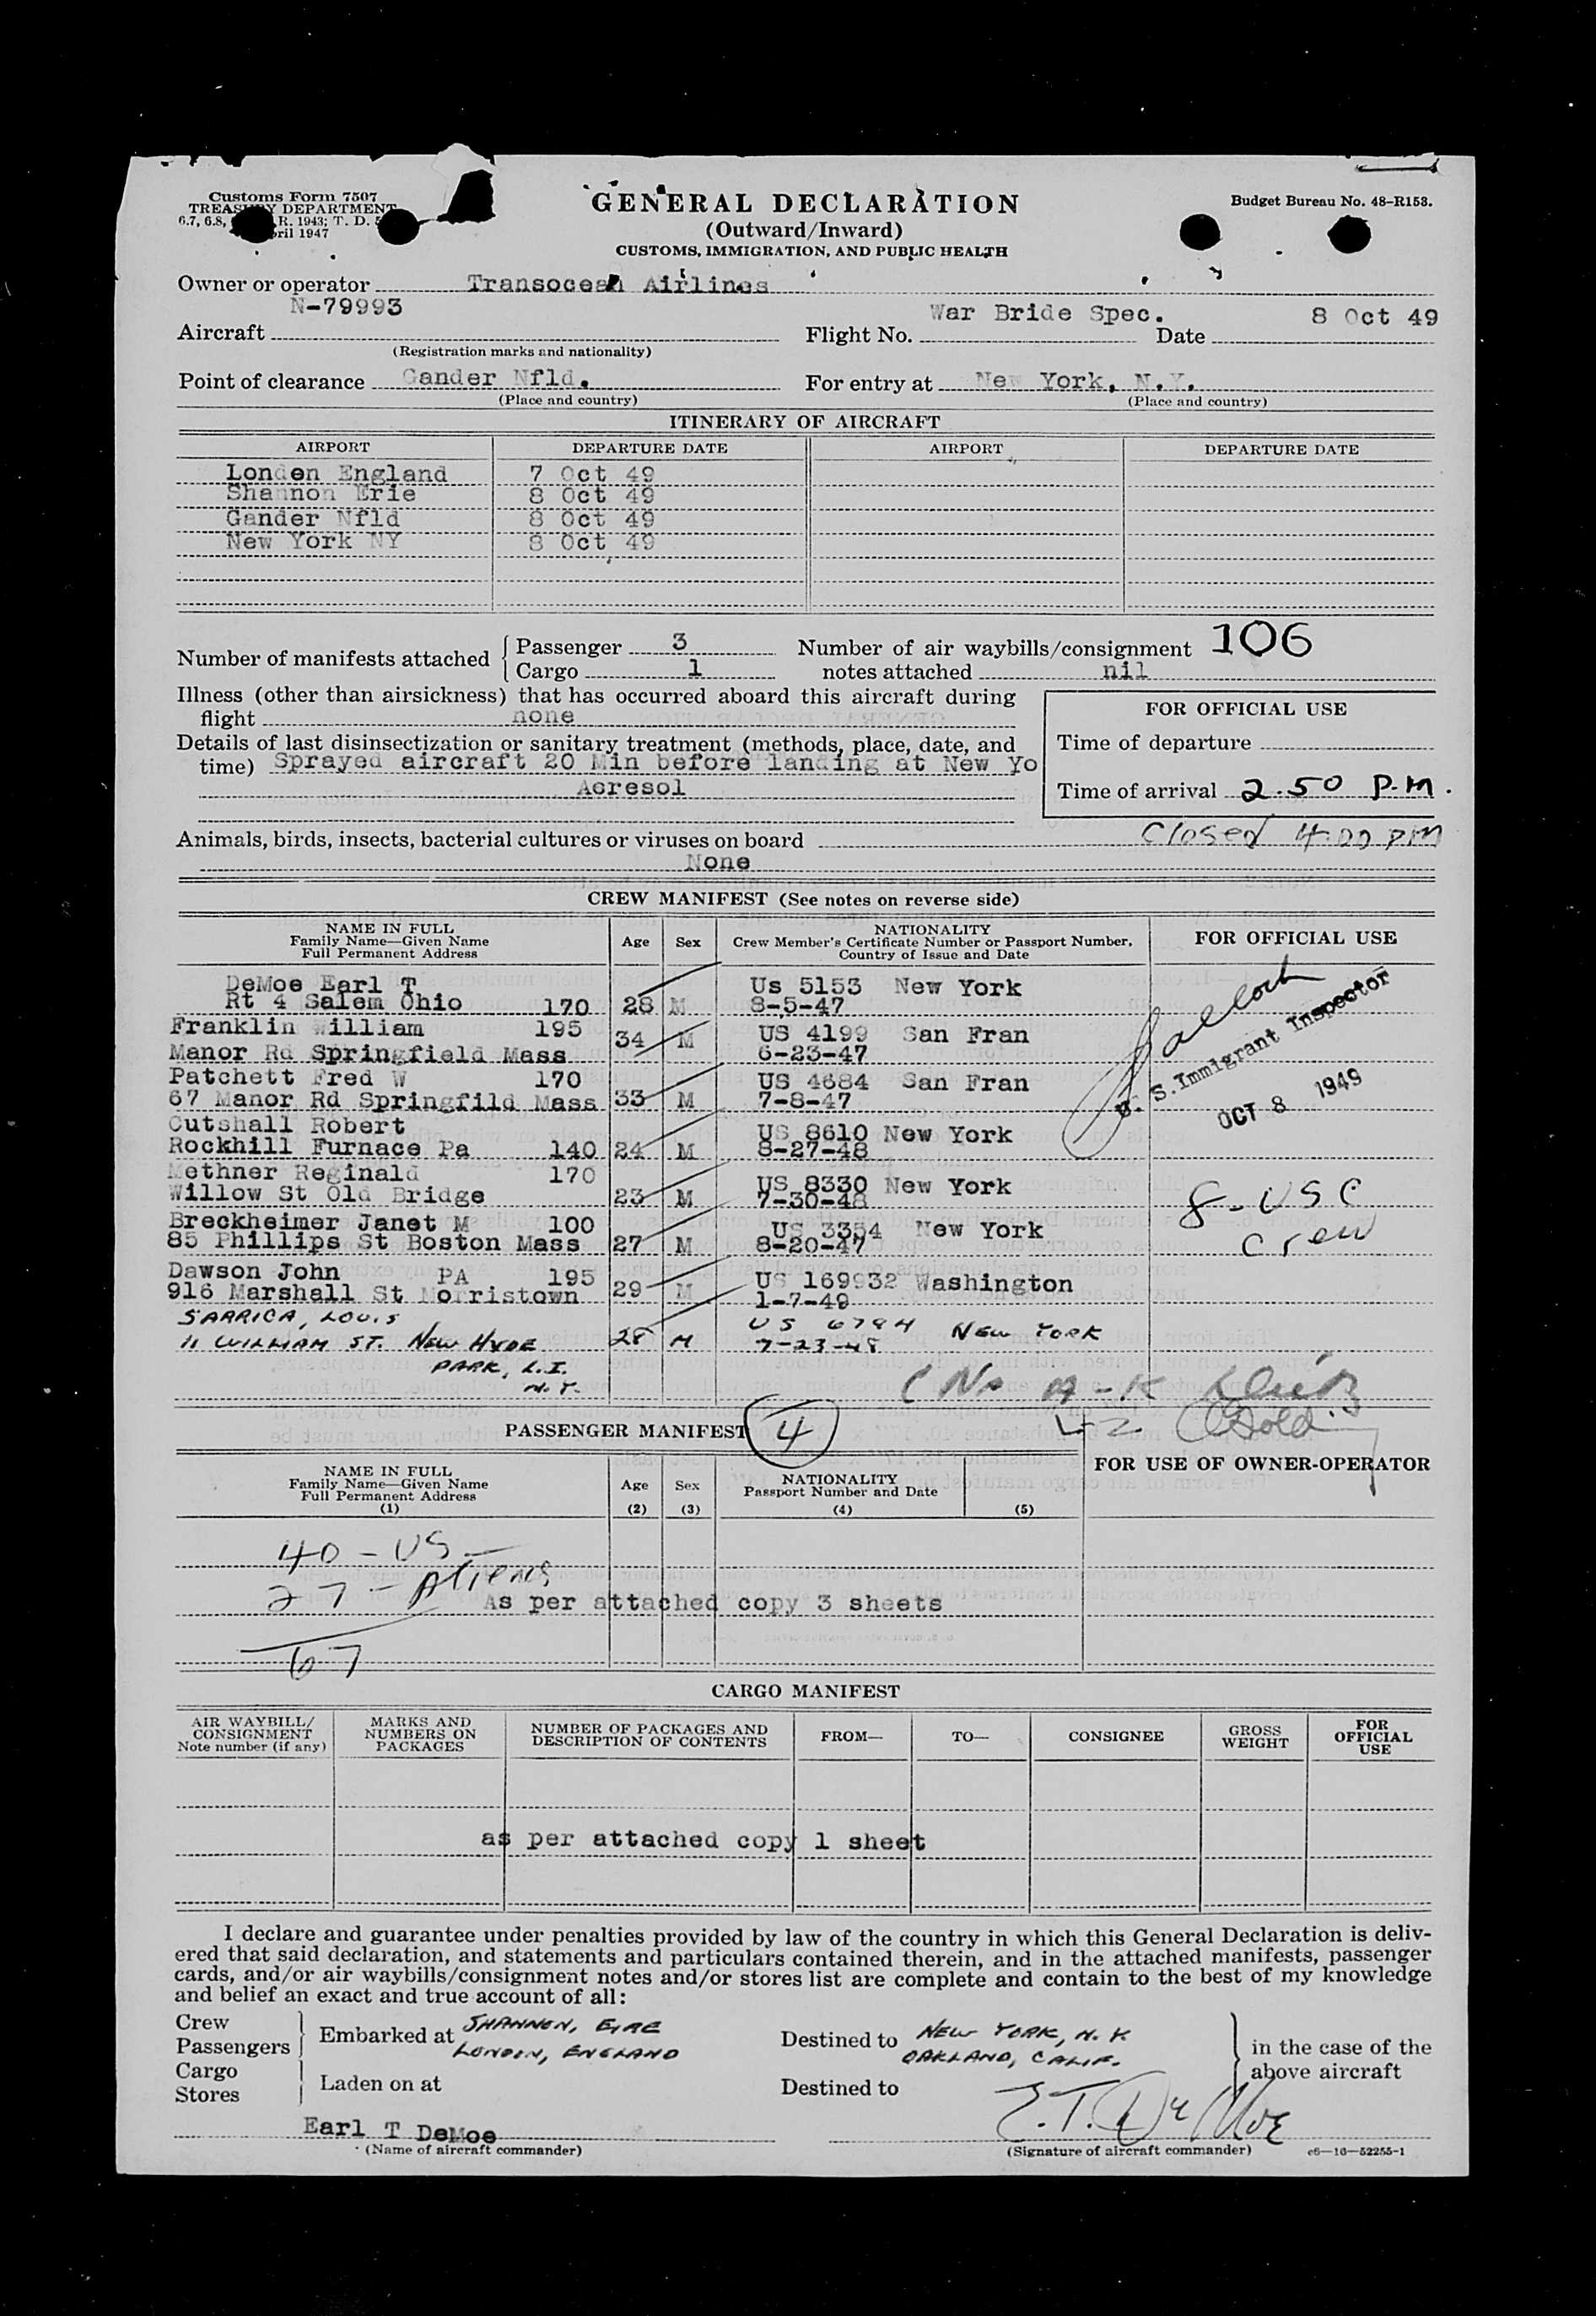 Customs Form 7507
TREASURY DEPARTMENT
6.7, 6.8, R. 1943; T. D.
April 1947
GENERAL DECLARATION
(Outward/Inward)
CUSTOMS, IMMIGRATION, AND PUBLIC HEALTH
Budget Bureau No. 48-R153.
Owner or operator Transocean Airlines
N-79993 War Bride Spec. 8 Oct 49
Aircraft Flight No. Date
(Registration marks and nationality)
Point of clearance Gander Nfld. For entry at New York, N.Y.
(Place and country) (Place and country)
ITINERARY OF AIRCRAFT
AIRPORT DEPARTURE DATE AIRPORT DEPARTURE DATE
Londen England 7 Oct 49
Shannon Erie 8 Oct 49
Gander Nfld 8 Oct 49
New York NY 8 Oct 49
Number of manifests attached Passenger 3 Number of air waybills/consignment 106
Cargo 1 notes attached nil
Illness (other than airsickness) that has occurred aboard this aircraft during
flight none
FOR OFFICIAL USE
Details of last disinsectization or sanitary treatment (methods, place, date, and
time) Sprayed aircraft 20 Min before landing at New Yo
Aeresol
Time of departure
Time of arrival 2.50 P.M.
Closed 4:00 PM
Animals, birds, insects, bacterial cultures or viruses on board
None
CREW MANIFEST (See notes on reverse side)
NAME IN FULL
Family Name—Given Name
Full Permanent Address
Age Sex
NATIONALITY
Crew Member's Certificate Number or Passport Number,
Country of Issue and Date
FOR OFFICIAL USE
DeMoe Earl T Us 5153 New York
Rt 4 Salem Ohio 170 28 M 8-5-47
Franklin William 195 34 M US 4199 San Fran
Manor Rd Springfield Mass 6-23-47
Patchett Fred W 170 US 4684 San Fran
67 Manor Rd Springfild Mass 33 M 7-8-47
Cutshall Robert US 8610 New York
Rockhill Furnace Pa 140 24 M 8-27-48
Methner Reginald 170 US 8330 New York
Willow St Old Bridge 23 M 7-30-48
Breckheimer Janet M 100 US 3354 New York
85 Phillips St Boston Mass 27 M 8-20-47
Dawson John PA 195 29 M US 169932 Washington
916 Marshall St Morristown 1-7-49
SARRICA, LOUIS US 6784 NEW YORK
11 WILLIAM ST. NEW HYDE 28 M 7-23-48
PARK, L.I.
N.Y.
U.S. Immigrant Inspector
OCT 8 1949
8-USC
Crew
A-K
L-Z
PASSENGER MANIFEST 4
NAME IN FULL
Family Name—Given Name
Full Permanent Address
(1)
Age
(2)
Sex
(3)
NATIONALITY
Passport Number and Date
(4) (5)
FOR USE OF OWNER-OPERATOR
40 - US -
27 - Aliens
As per attached copy 3 sheets
67
CARGO MANIFEST
AIR WAYBILL/
CONSIGNMENT
Note number (if any)
MARKS AND
NUMBERS ON
PACKAGES
NUMBER OF PACKAGES AND
DESCRIPTION OF CONTENTS
FROM— TO— CONSIGNEE
GROSS
WEIGHT
FOR
OFFICIAL
USE
as per attached copy 1 sheet
I declare and guarantee under penalties provided by law of the country in which this General Declaration is deliv-
ered that said declaration, and statements and particulars contained therein, and in the attached manifests, passenger
cards, and/or air waybills/consignment notes and/or stores list are complete and contain to the best of my knowledge
and belief an exact and true account of all:
Crew
Passengers
Cargo
Stores
Embarked at SHANNEN, EIRE
LONDON, ENGLAND
Laden on at
Destined to NEW YORK, N.Y.
OAKLAND, CALIF.
Destined to
in the case of the
above aircraft
Earl T DeMoe E.T. DeMoe
(Name of aircraft commander) (Signature of aircraft commander) c6—16—52255-1